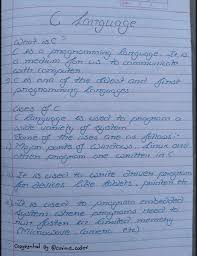 C Language
What is C?
C is a programming language. It is
a medium for us to communicate
with computer.
C is one of the oldest and first
programming languages.
Uses of C
C language is used to program a
wide variety of system.
Some of the uses are as follows:-
1) Major parts of Windows, Linux and
other program are written in C
2) It is used to write driver program
for devices like tablets, printer etc
3) It is used to program embedded
system where programs need to
run faster in limited memory
(Microwave, camera etc)
Copyrighted By @